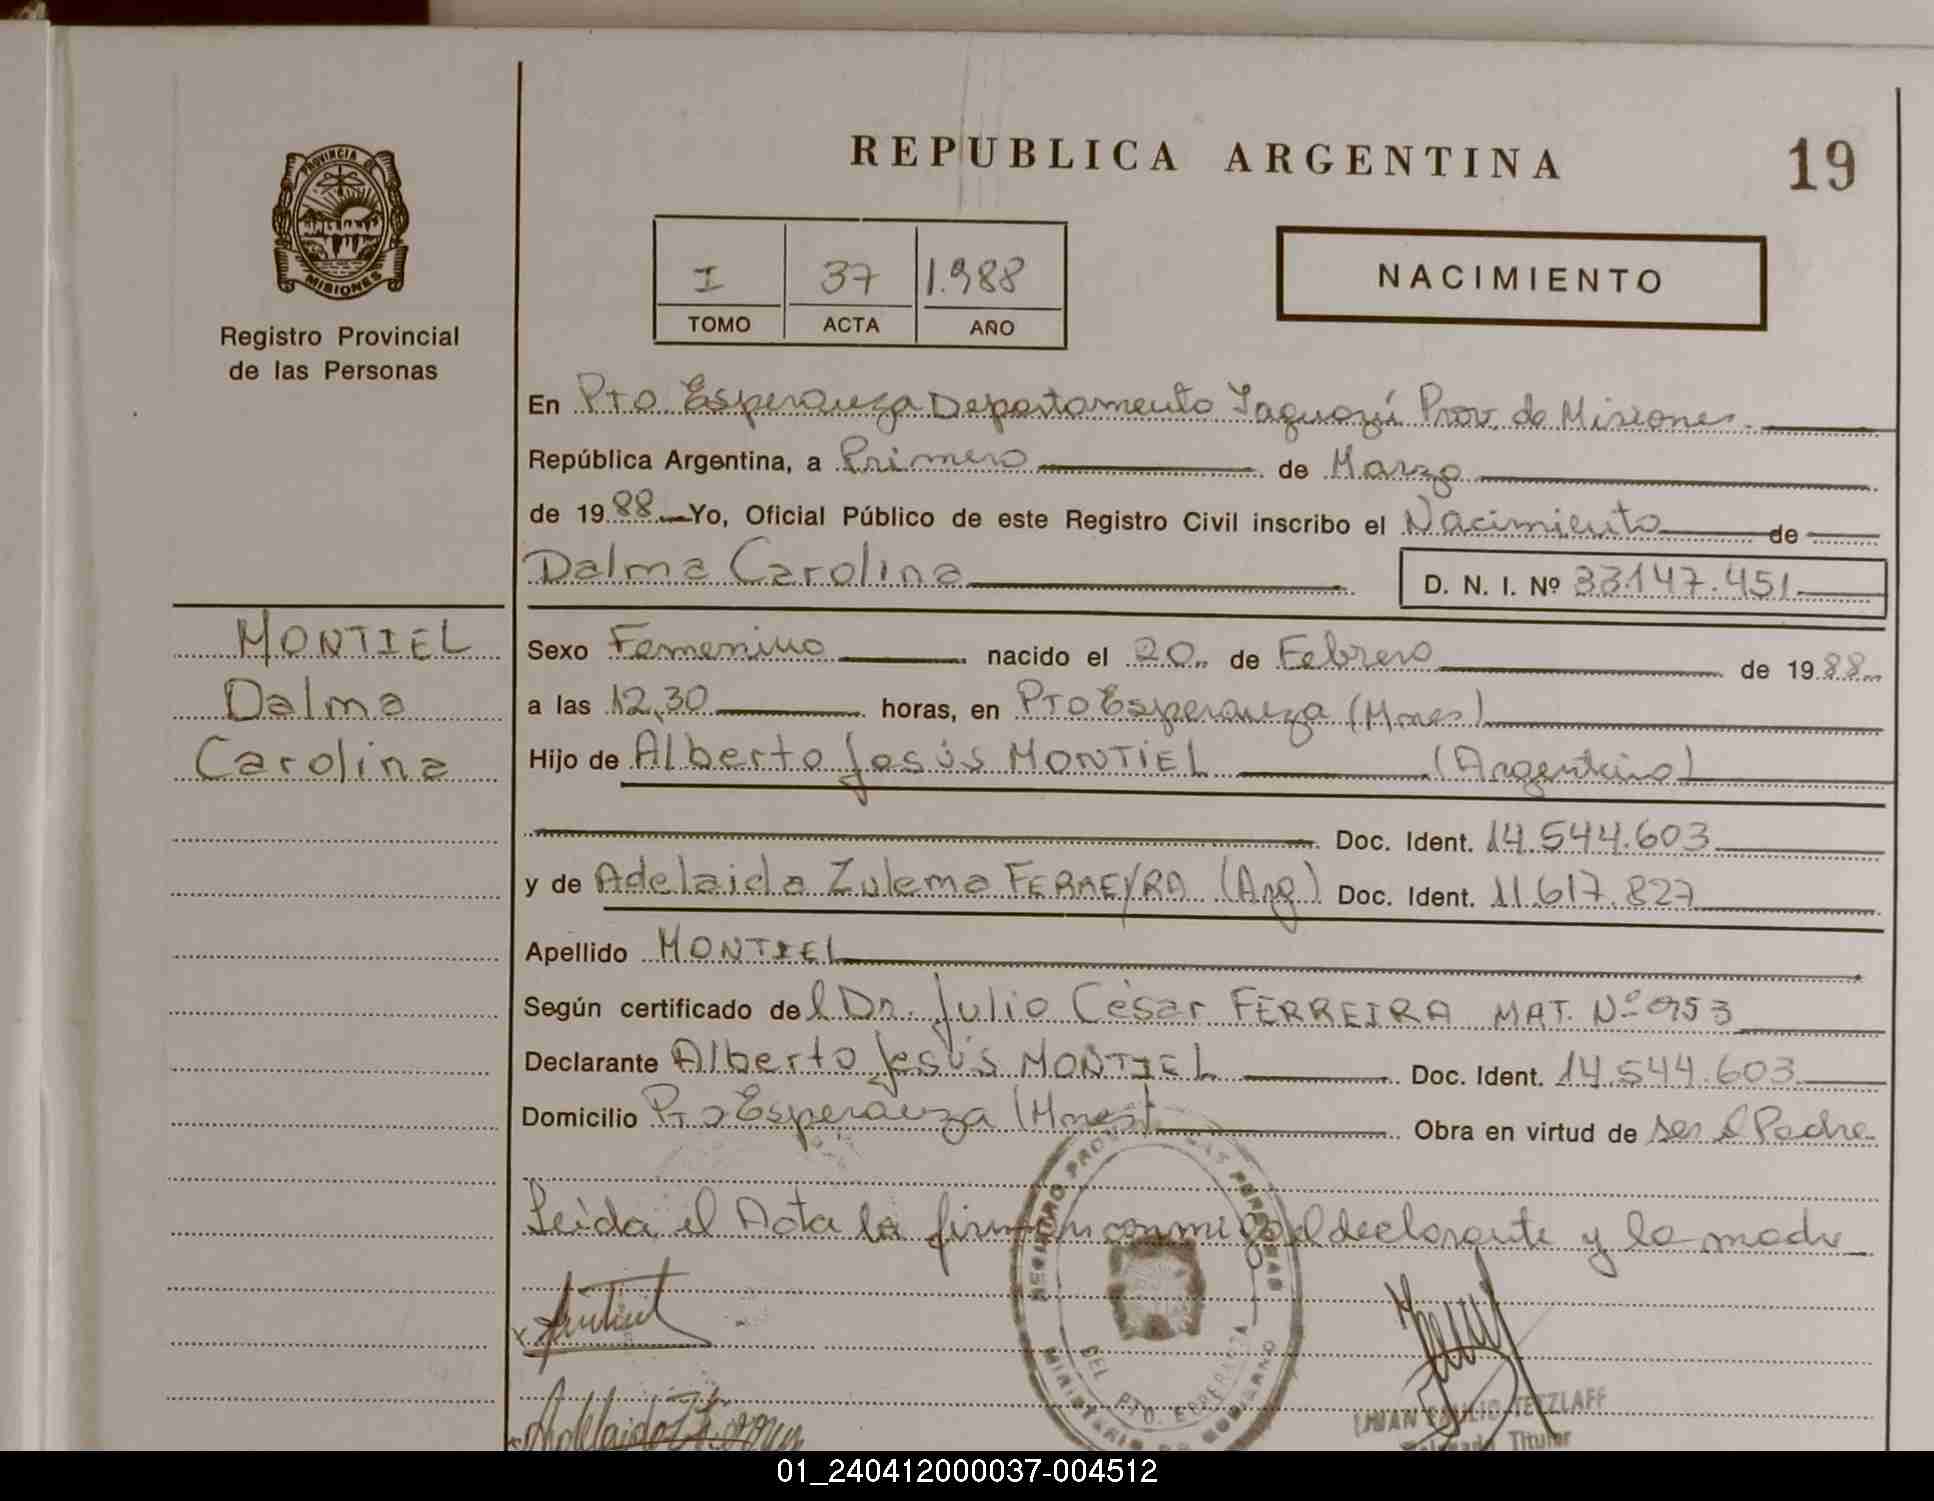 REPUBLICA ARGENTINA
19
PROVINCIA DE
MISIONES
Registro Provincial
de las Personas
I 37 1.988
TOMO ACTA AÑO
NACIMIENTO
En Pto. Esperanza Departamento Iguazú Prov. de Misiones.
República Argentina, a Primero de Marzo
de 1988 Yo, Oficial Público de este Registro Civil inscribo el Nacimiento de
Dalma Carolina D. N. I. Nº 33147.451
MONTIEL
Dalma
Carolina
Sexo Femenino nacido el 20 de Febrero de 1988
a las 12,30 horas, en Pto Esperanza (Mnes)
Hijo de Alberto Jesús MONTIEL (Argentino)
Doc. Ident. 14.544.603
y de Adelaida Zulema FERREYRA (Arg) Doc. Ident. 11.617.827
Apellido MONTIEL
Según certificado del Dr. Julio César FERREIRA MAT. Nº 0953
Declarante Alberto Jesús MONTIEL Doc. Ident. 14.544.603
Domicilio Pto Esperanza (Mnes) Obra en virtud de ser el Padre
Leída el Acta la firman conmigo el declarante y la madre
REGISTRO PRO LAS PERSONAS
DEL PTO. ESPERANZA
MINISTERIO DE GOBIERNO
JUAN PAULIO TETZLAFF
Delegado Titular
01_240412000037-004512